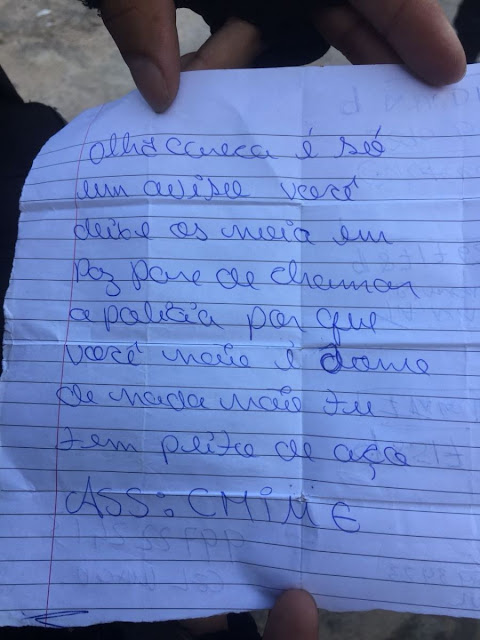 olha careca é só
um aviso você
deixe os noia em
paz pare de chamar
a policia por que
você não é dono
de nada não tu
tem peito de aço
ASS: CMIME